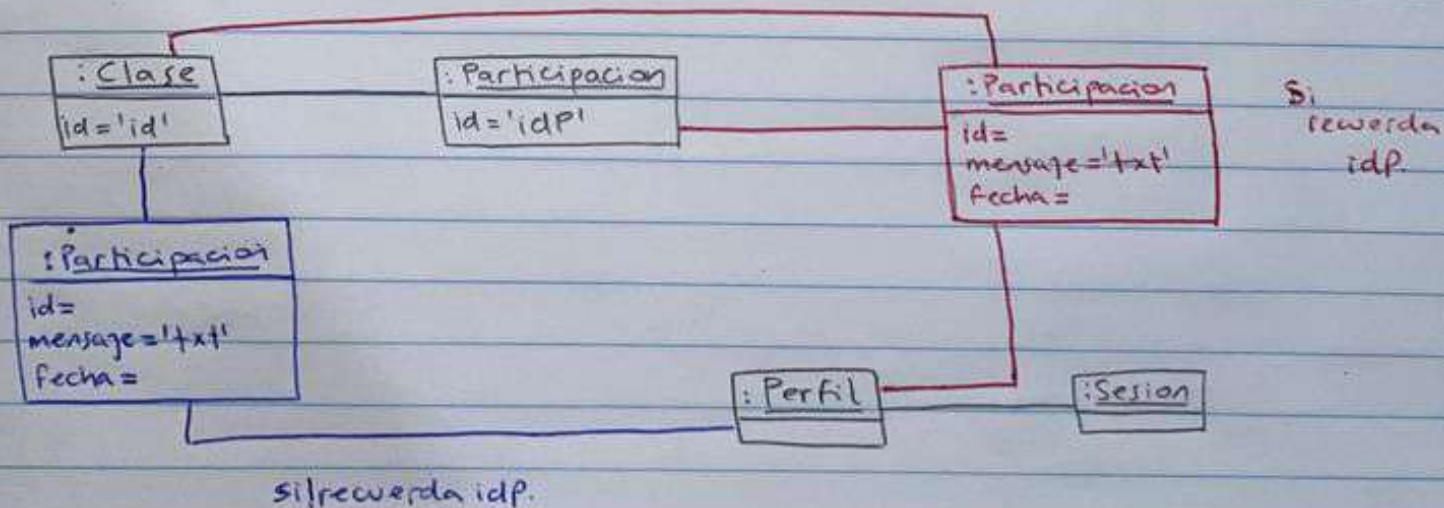 :Clase
id='id'
:Participacion
id='idP'
:Participacion
id=
mensaje='txt'
fecha=
Si
recuerda
idP.
:Participacion
id=
mensaje='txt'
fecha=
:Perfil
:Sesion
si!recuerda idP.